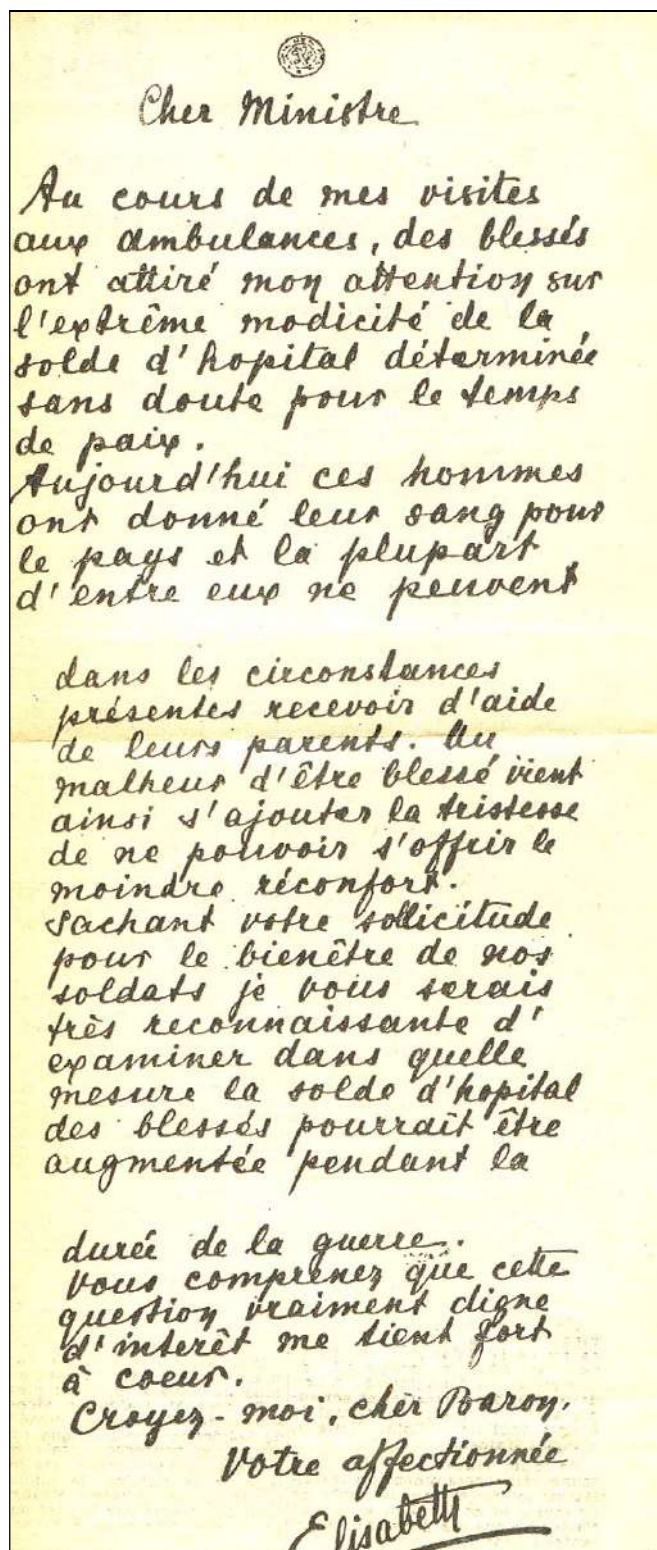 Cher Ministre
Au cours de mes visites
aux ambulances, des blessés
ont attiré mon attention sur
l'extrême modicité de la
solde d'hopital déterminée
sans doute pour le temps
de paix.
Aujourd'hui ces hommes
ont donné leur sang pour
le pays et la plupart
d'entre eux ne peuvent
dans les circonstances
présentes recevoir d'aide
de leurs parents. Au
malheur d'être blessé vient
ainsi s'ajouter la tristesse
de ne pouvoir s'offrir le
moindre réconfort.
Sachant votre sollicitude
pour le bienêtre de nos
soldats je vous serais
très reconnaissante d'
examiner dans quelle
mesure la solde d'hopital
des blessés pourrait être
augmentée pendant la
durée de la guerre.
Vous comprenez que cette
question vraiment digne
d'interêt me tient fort
à coeur.
Croyez-moi, cher Baron,
Votre affectionnée
Elisabeth